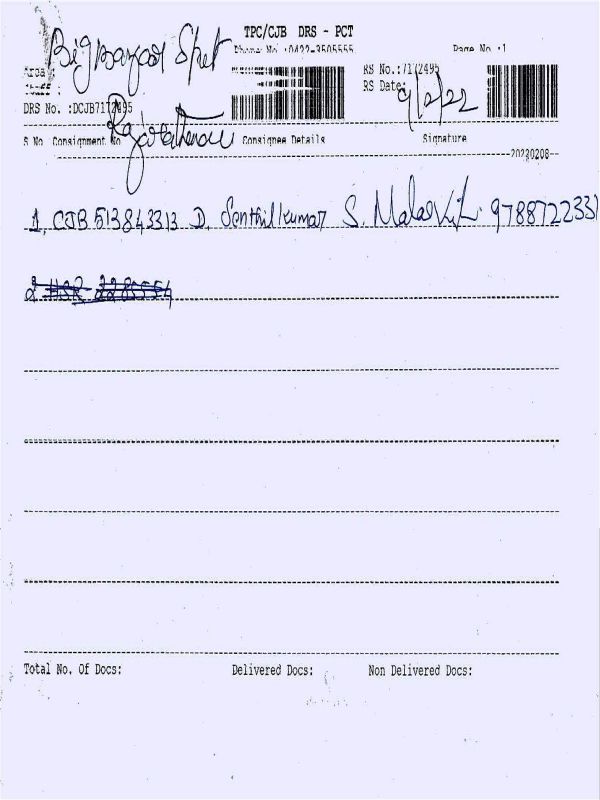 TPC/CJB DRS - PCT
Phone No :0422-3505555 Page No :1
Area :
RS No.:7172495
RS Date: 9/2/22
DRS No. :DCJB7172495
S No Consignment No Consignee Details Signature
20230208
1, CJB 513843313 D. Senthilkumar S. 9788722331
2
Total No. Of Docs: Delivered Docs: Non Delivered Docs: